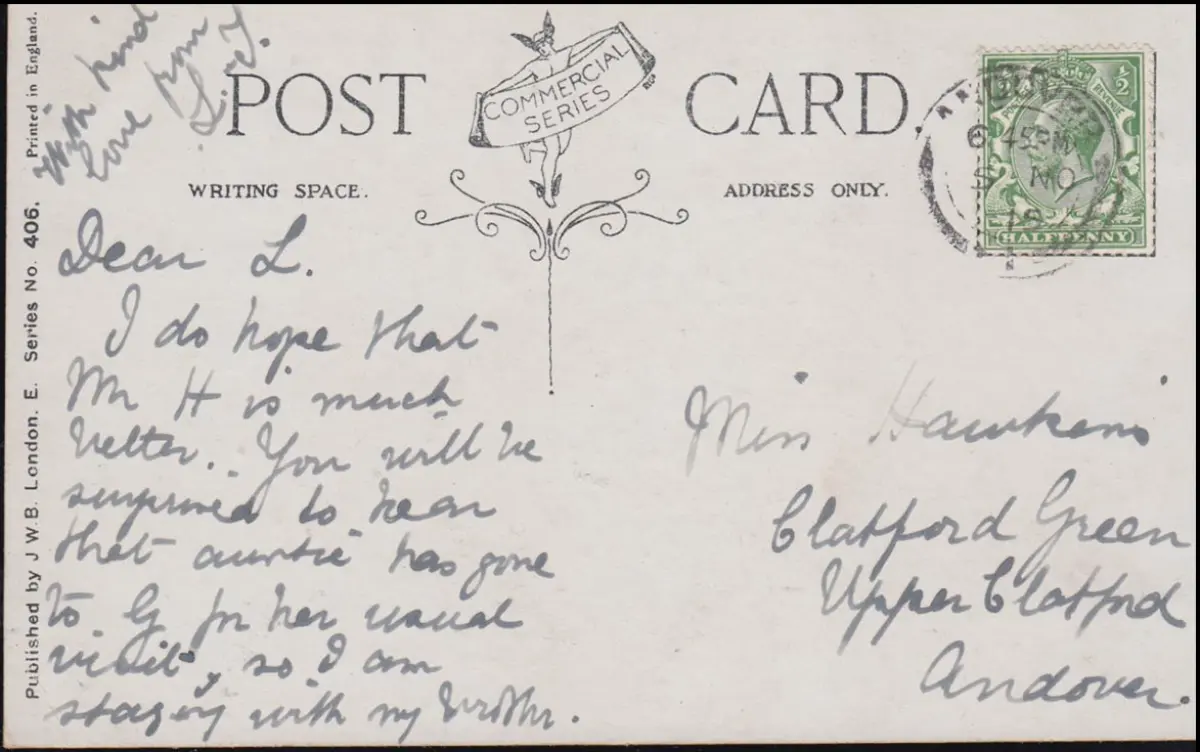 With kind
love from
POST CARD.
COMMERCIAL
SERIES
WRITING SPACE.
ADDRESS ONLY.
Dear L.
I do hope that
Mr H is much
better. You will be
surprised to hear
that auntie has gone
to G for her usual
visit, so I am
staying with my brother.
Miss Hawkins
Clatford Green
Upper Clatford
Andover.
½
½
HALFPENNY
6 45 PM
NO
Published by J.W.B. London. E. Series No. 406. Printed in England.